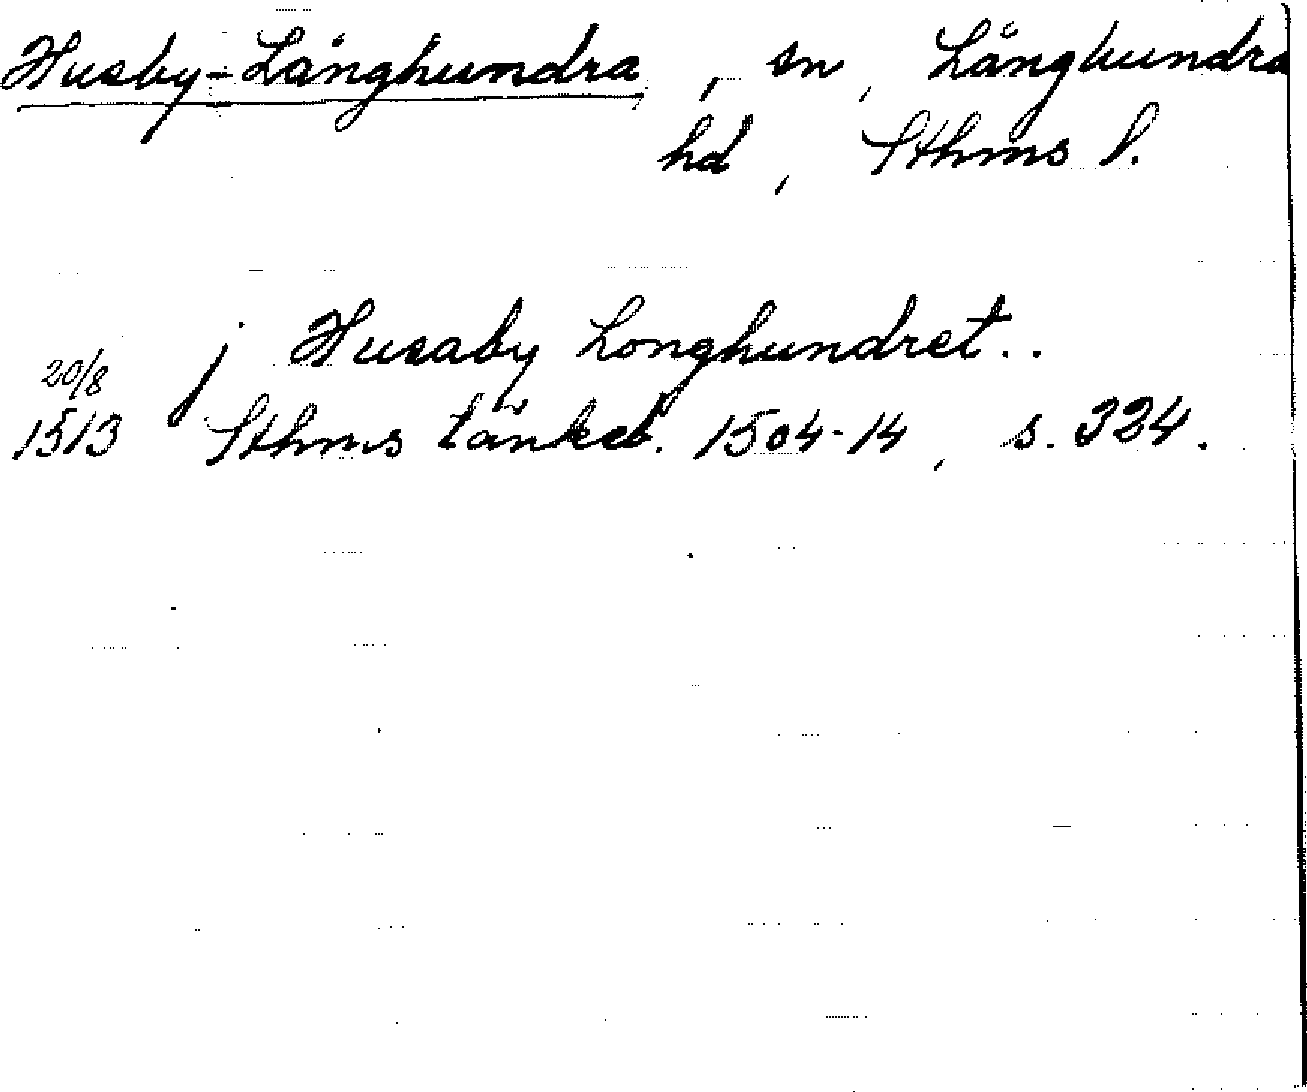 Husby-Långhundra, sn, Långhundra
hd, Sthms l.
j Husaby Longhundret..
20/8
1513 Sthms tänkeb. 1504-14, s. 324.